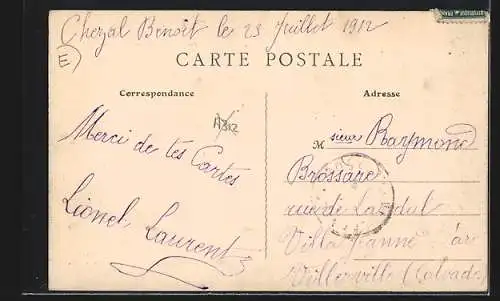 Chezal Benoit le 23 Juillet 1912
E
CARTE POSTALE
Correspondance
Adresse
Merci de tes Cartes
Lionel Laurent
M sieur Raymond
Brossare
rue de
Villa Jeanne
Villerville (Calvados